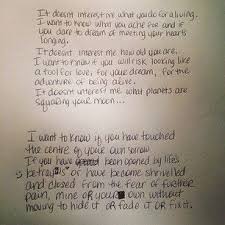 It doesnt interest me what you do for a living.
I want to know what you ache for and if
you dare to dream of meeting your hearts
longing.
It doesnt interest me how old you are.
I want to know if you will risk looking like
a tool for love, for your dream, for the
adventure of being alive.
It doesnt interest me what planets are
squaring your moon...
I want to know if you have touched
the centre of your own sorrow
If you have been opened by life's
betrayals or have become shrivelled
and closed from the fear of further
pain, mine OR your own without
moving to hide it OR fade it OR fix it.